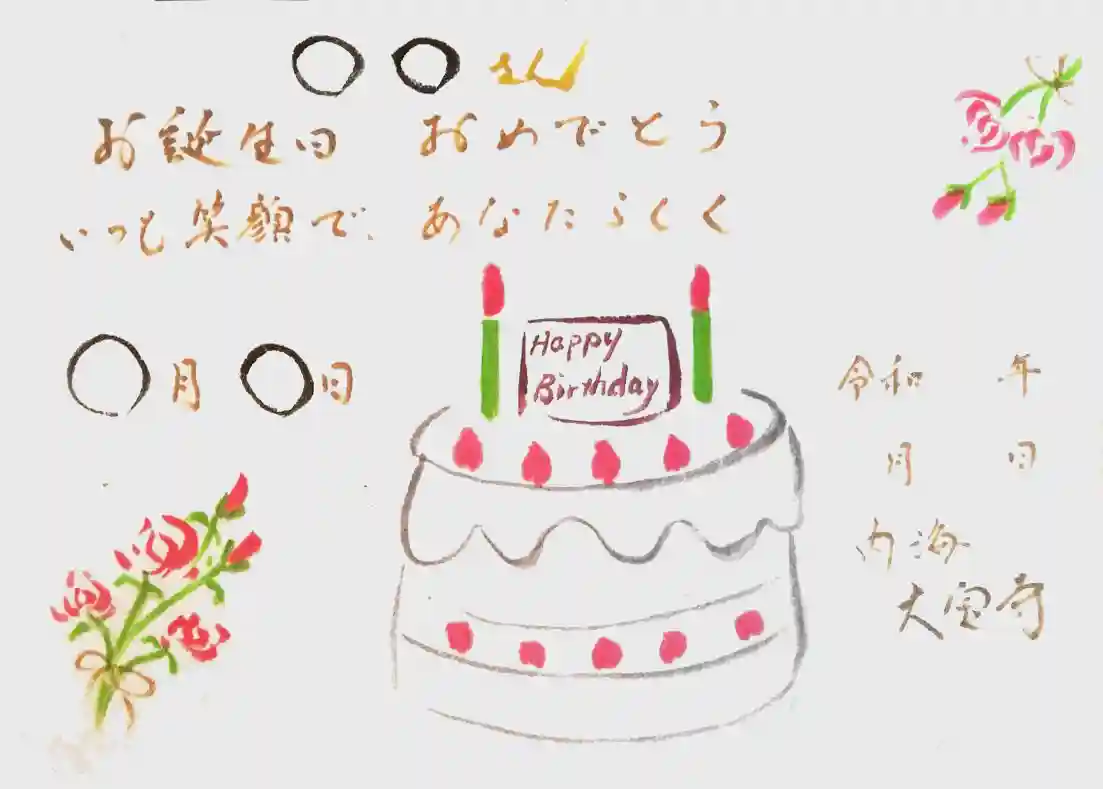 ○○さん
お誕生日 おめでとう
いつも笑顔で、あなたらしく
Happy
Birthday
○月○日
令和 年
月 日
内海
大宝寺